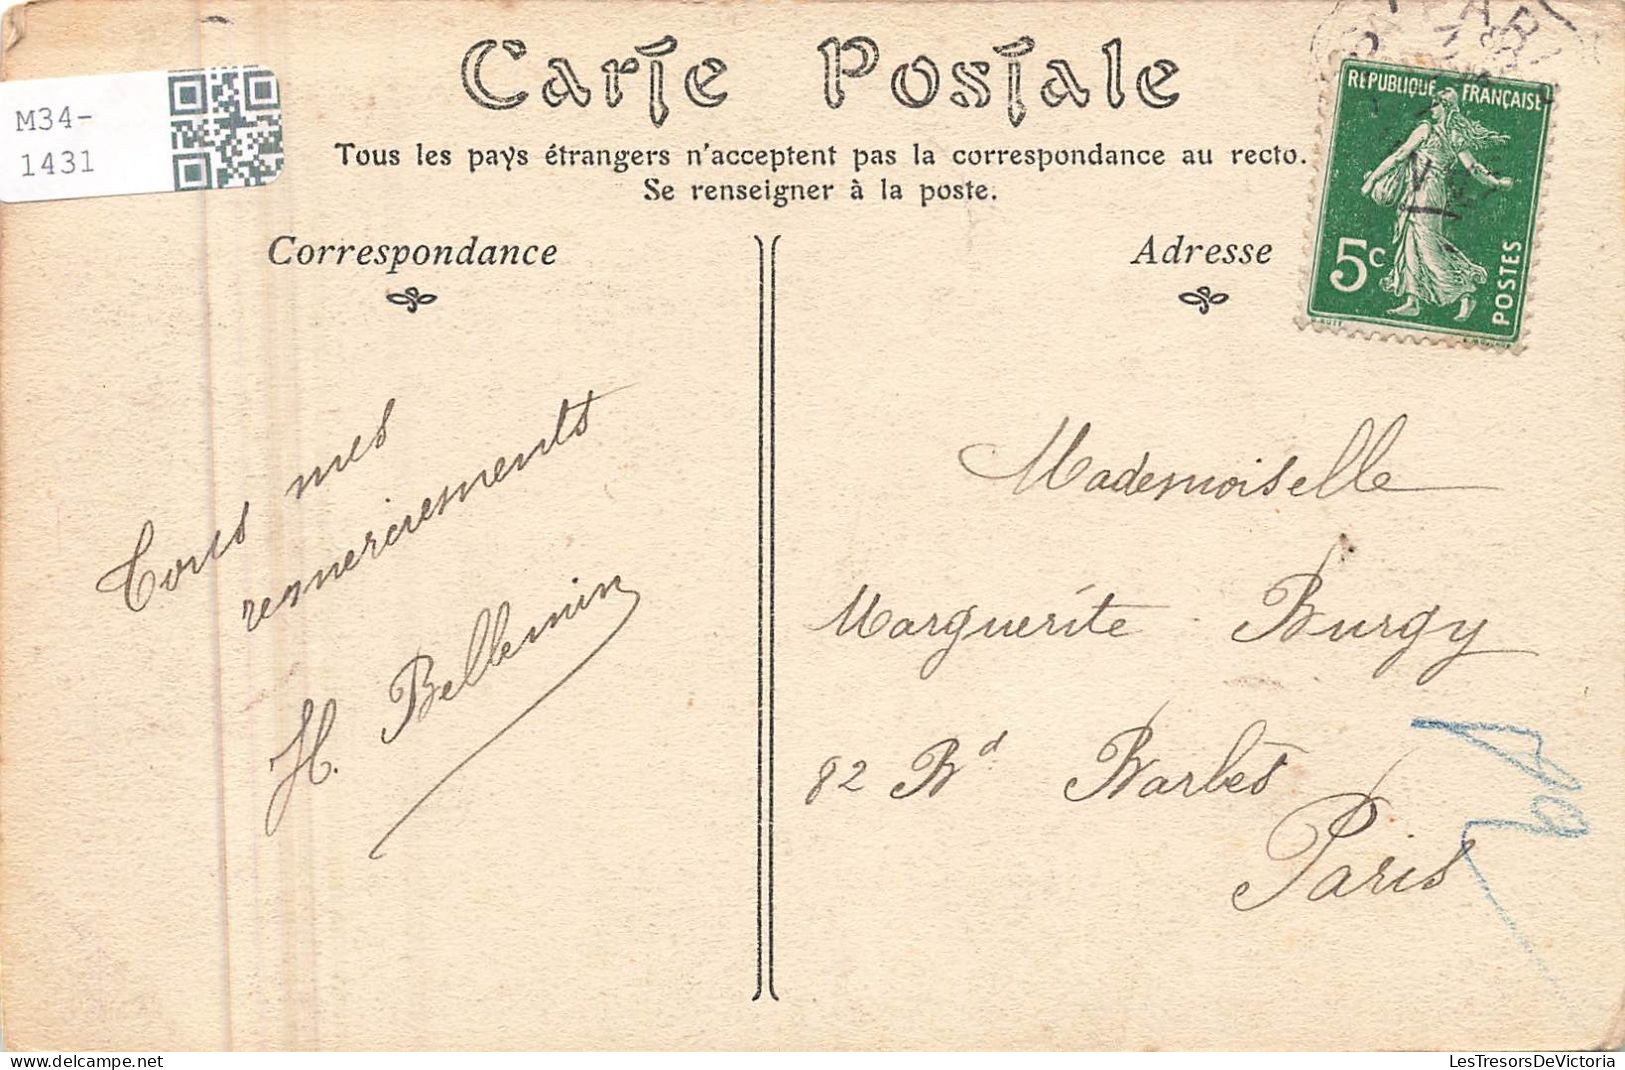 M34-
1431
Carte Postale
Tous les pays étrangers n'acceptent pas la correspondance au recto.
Se renseigner à la poste.
Correspondance
Adresse
RÉPUBLIQUE FRANÇAISE
5c
POSTES
Tous mes
remerciements
H. Bellemin
Mademoiselle
Marguerite Burgy
82 Bd Barbès
Paris
LesTresorsDeVictoria